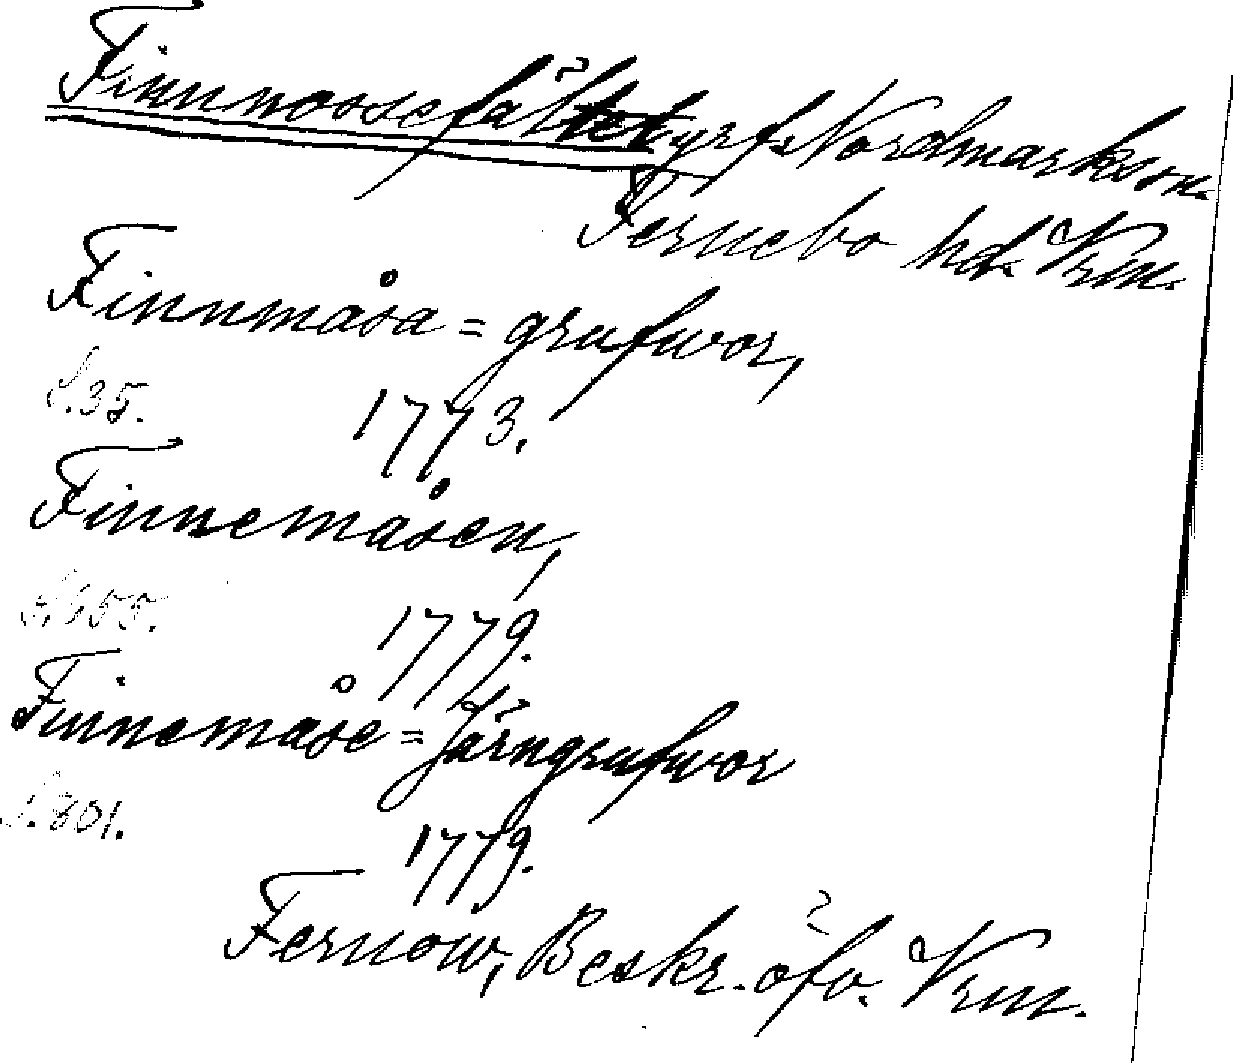 Finnmossefältet gruf. Nordmarks sn.
Fernebo hd. Vrm.
Finnmåsa = grufwor,
S. 35. 1773.
Finnemåsen,
S. 655. 1779.
Finnemåse = Järngrufwor
S. 801. 1779.
Fernow, Beskr. öfv. Vrm.